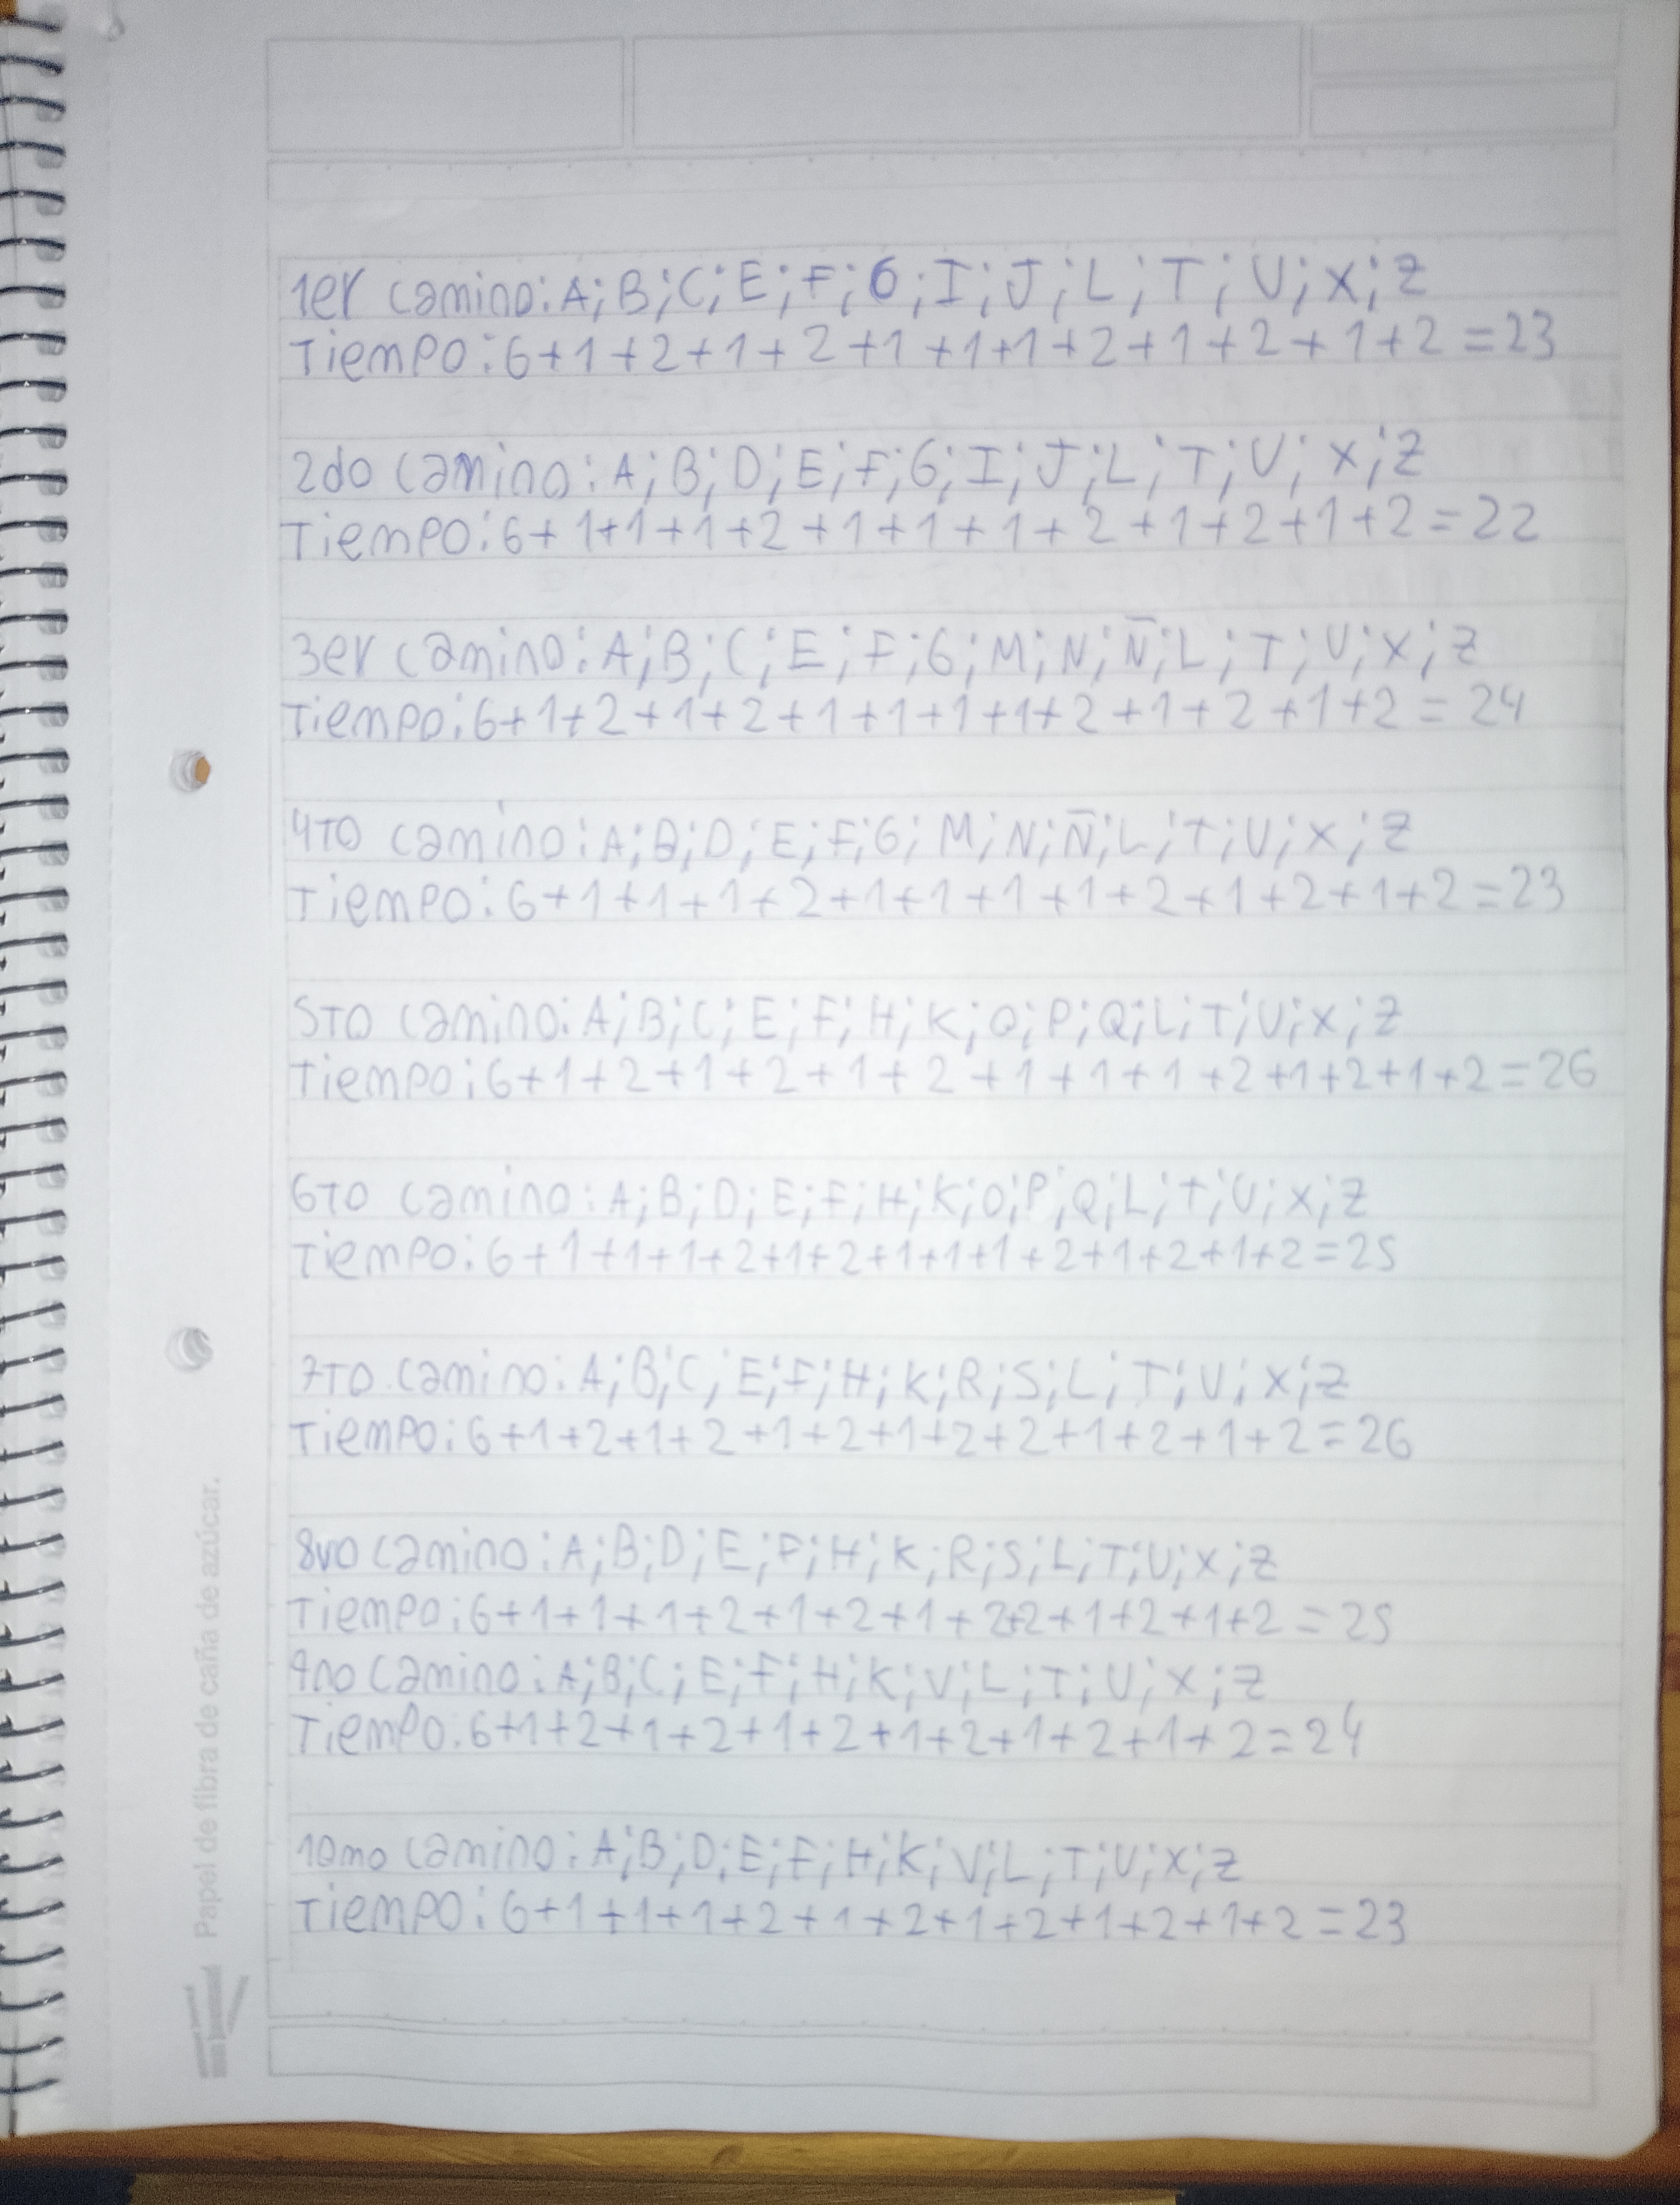 1er camino: A; B; C; E; F; G; I; J; L; T; U; X; Z
Tiempo: 6+1+2+1+2+1+1+1+2+1+2+1+2=23
2do camino: A; B; D; E; F; G; I; J; L; T; U; X; Z
Tiempo: 6+1+1+1+2+1+1+1+2+1+2+1+2=22
3er camino: A; B; C; E; F; G; M; N; Ñ; L; T; U; X; Z
Tiempo: 6+1+2+1+2+1+1+1+1+2+1+2+1+2=24
4to camino: A; B; D; E; F; G; M; N; Ñ; L; T; U; X; Z
Tiempo: 6+1+1+1+2+1+1+1+1+2+1+2+1+2=23
5to camino: A; B; C; E; F; H; K; O; P; Q; L; T; U; X; Z
Tiempo: 6+1+2+1+2+1+2+1+1+1+2+1+2+1+2=26
6to camino: A; B; D; E; F; H; K; O; P; Q; L; T; U; X; Z
Tiempo: 6+1+1+1+2+1+2+1+1+1+2+1+2+1+2=25
7to camino: A; B; C; E; F; H; K; R; S; L; T; U; X; Z
Tiempo: 6+1+2+1+2+1+2+1+2+2+1+2+1+2=26
8vo camino: A; B; D; E; F; H; K; R; S; L; T; U; X; Z
Tiempo: 6+1+1+1+2+1+2+1+2+2+1+2+1+2=25
9no camino: A; B; C; E; F; H; K; V; L; T; U; X; Z
Tiempo: 6+1+2+1+2+1+2+1+2+1+2+1+2=24
10mo camino: A; B; D; E; F; H; K; V; L; T; U; X; Z
Tiempo: 6+1+1+1+2+1+2+1+2+1+2+1+2=23
Papel de fibra de caña de azúcar.